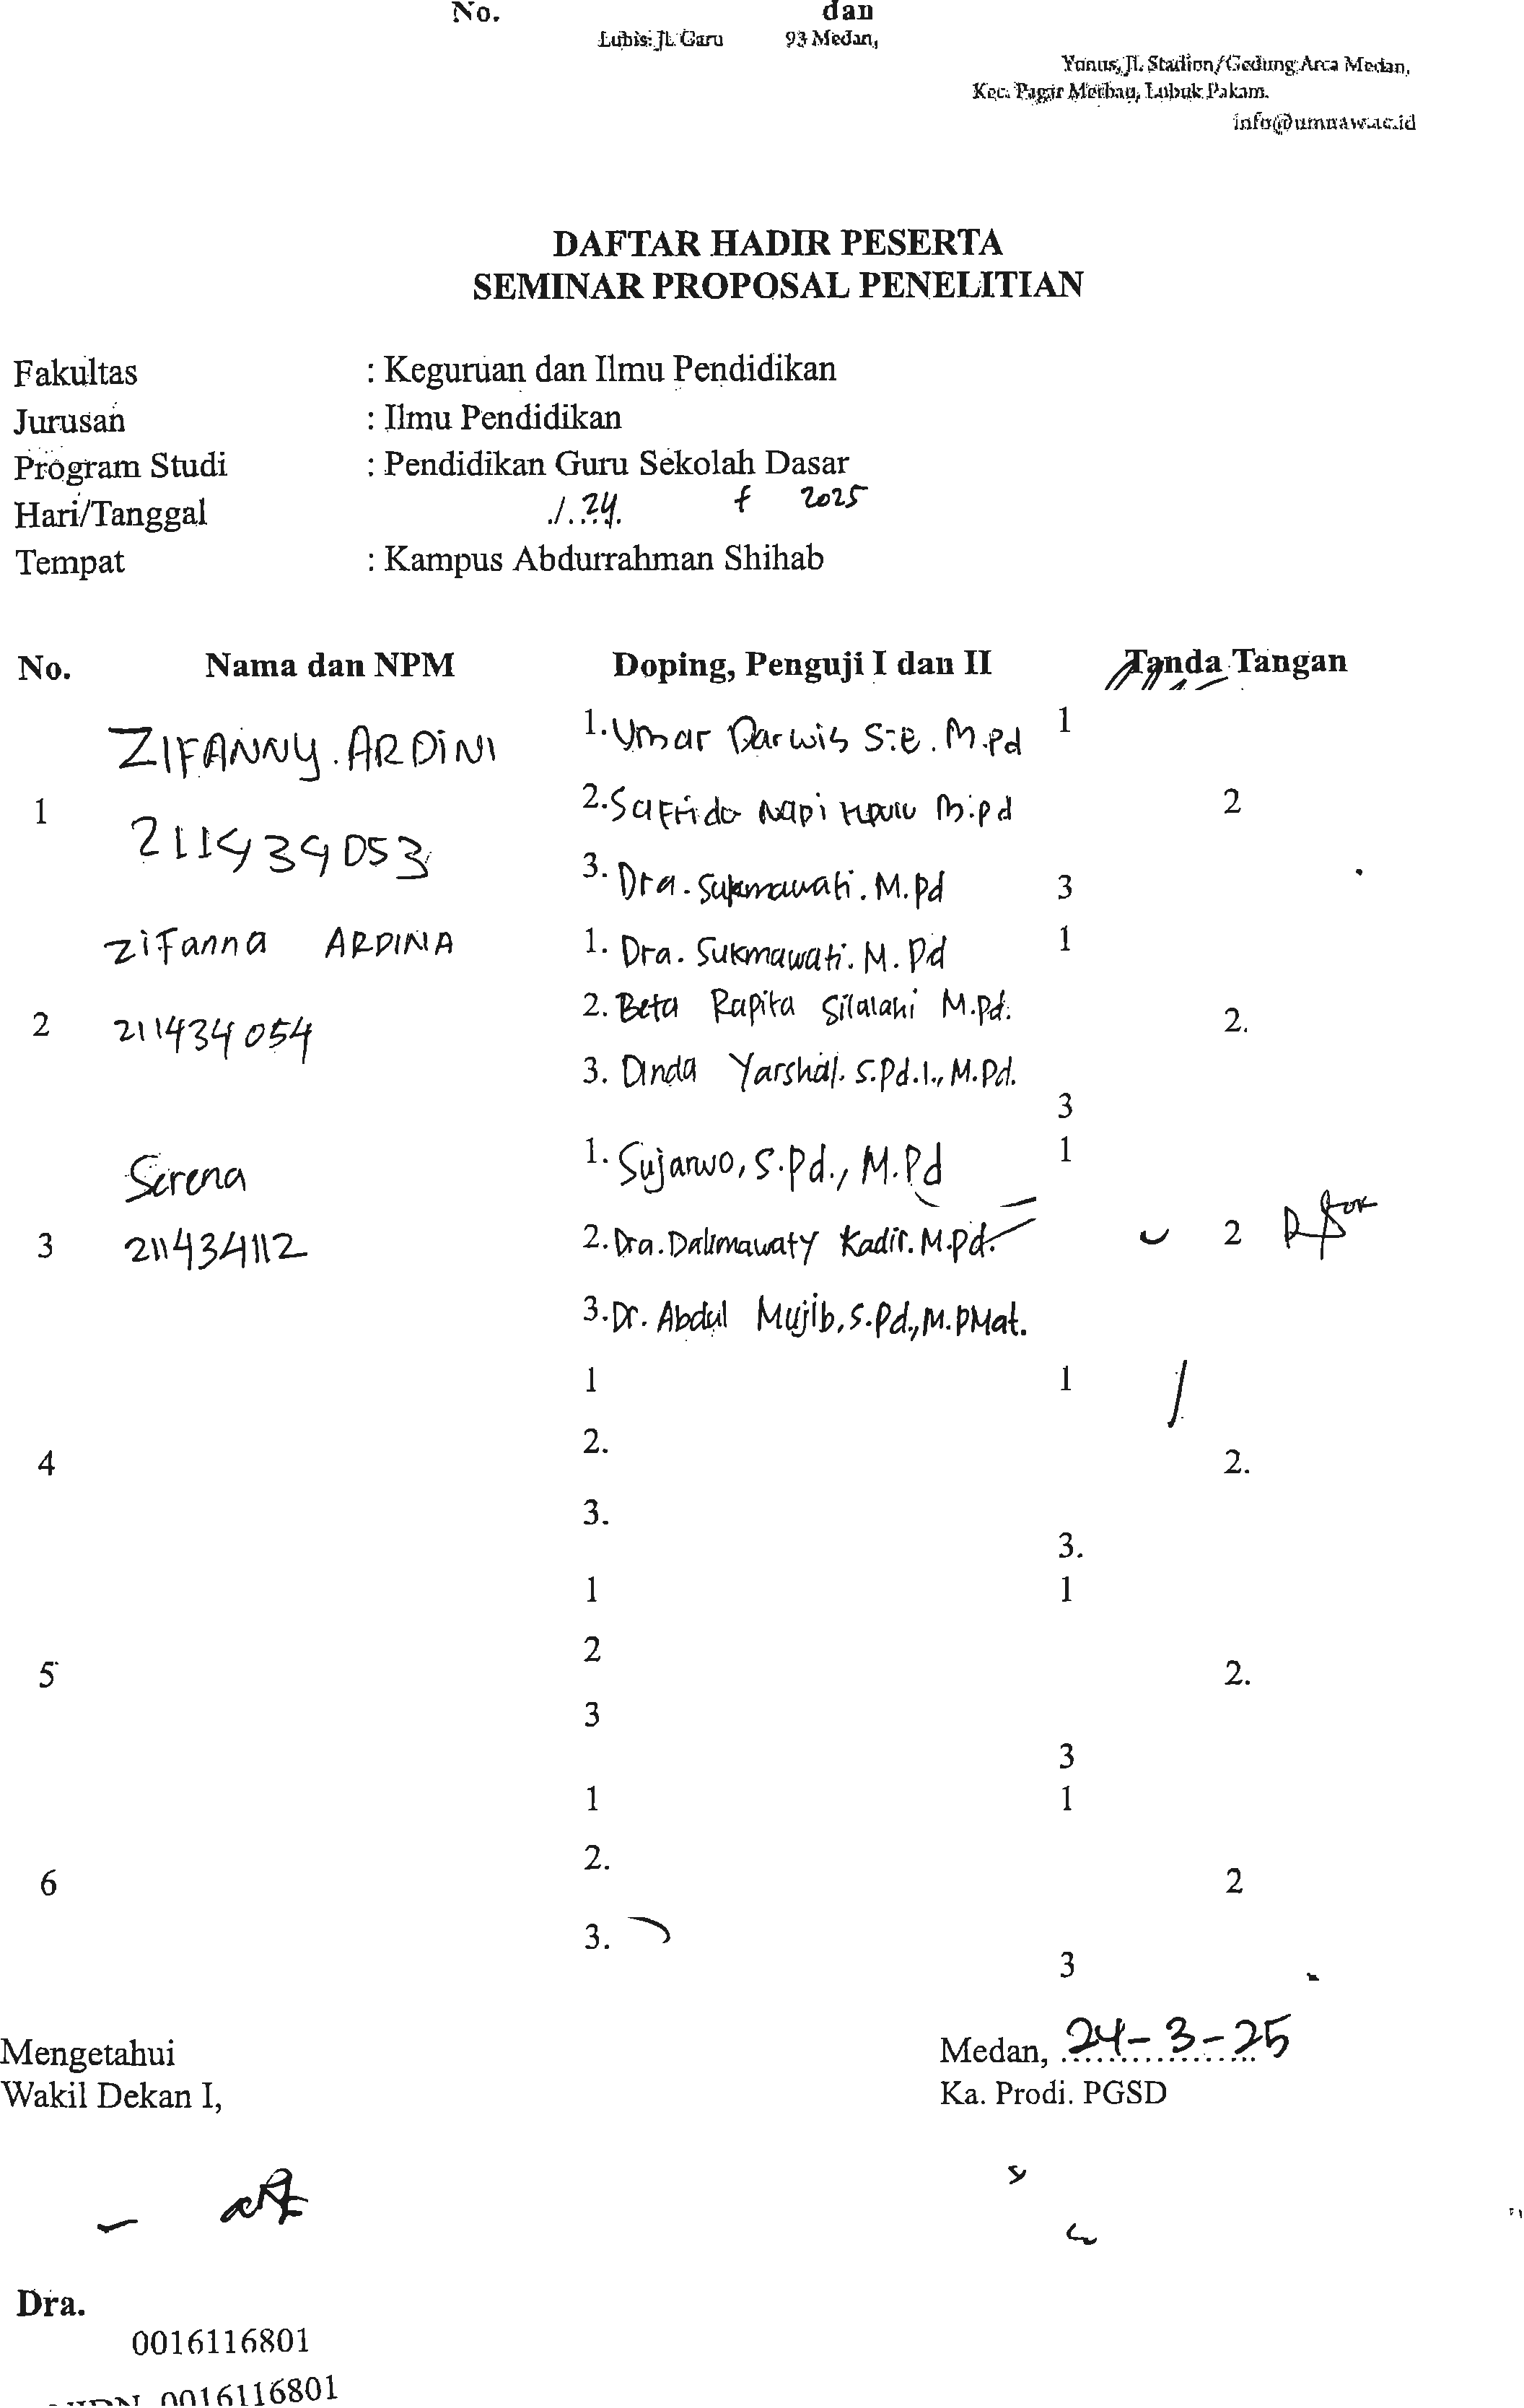 No. dan
Lubis: Jl. Garu 93 Medan,
Yunus, Jl. Stadion/Gedung Arca Medan,
Kec. Pagar Merbau, Lubuk Pakam.
info@umnaw.ac.id
DAFTAR HADIR PESERTA
SEMINAR PROPOSAL PENELITIAN
Fakultas : Keguruan dan Ilmu Pendidikan
Jurusan : Ilmu Pendidikan
Program Studi : Pendidikan Guru Sekolah Dasar
Hari/Tanggal / 24 2025
Tempat : Kampus Abdurrahman Shihab
No. Nama dan NPM Doping, Penguji I dan II Tanda Tangan
ZIFANNY. ARDINI 1. Umar Darwis S.E. M.Pd 1
1 2. Safrida Napitupulu M.pd 2
211434053
3. Dra. Sukmawati. M.Pd 3
Zifanna ARDINA 1. Dra. Sukmawati. M. Pd 1
2 211434054 2. Beta Rapita Silalahi M.Pd. 2.
3. Dinda Yarshal. S.Pd.I., M.Pd.
3
Serena 1. Sujarwo, S.Pd., M.Pd 1
3 211434112 2. Dra. Dalimawaty Kadir. M.Pd. 2
3. Dr. Abdul Mujib, S.Pd., M.PMat.
1 1
2.
4 2.
3.
3.
1 1
2
5 2.
3
3
1 1
2.
6 2
3.
3
Mengetahui Medan, 24-3-25
Wakil Dekan I, Ka. Prodi. PGSD
Dra.
0016116801
NIDN. 0016116801